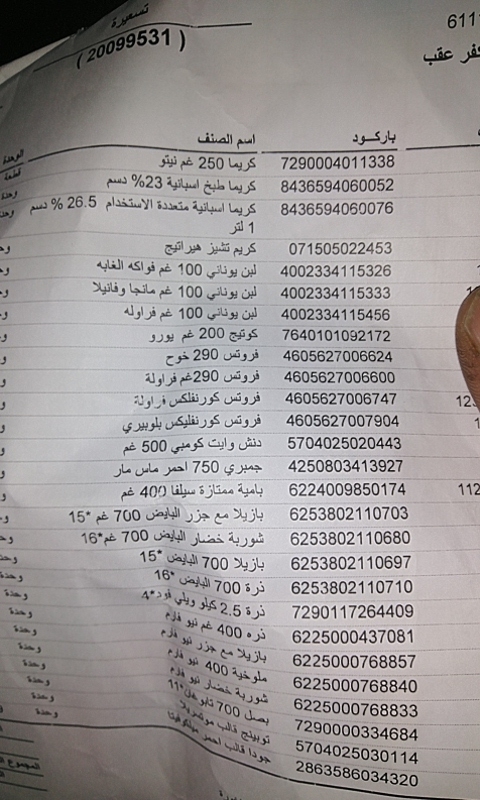 تسعيرة
( 20099531 )
6111
كفر عقب
باركود اسم الصنف الوحدة
7290004011338 كريما 250 غم نيتو قطعة
8436594060052 كريما طبخ اسبانية 23% دسم وحدة
8436594060076 كريما اسبانية متعددة الاستخدام 26.5 % دسم وحدة
1 لتر
071505022453 كريم تشيز هيراتيج
4002334115326 لبن يوناني 100 غم فواكه الغابه
4002334115333 لبن يوناني 100 غم مانجا وفانيلا
4002334115456 لبن يوناني 100 غم فراوله
7640101092172 كوتيج 200 غم يورو
4605627006624 فروتس 290 خوح
4605627006600 فروتس 290غم فراولة
4605627006747 فروتس كورنفلكس فراولة
4605627007904 فروتس كورنفليكس بلوبيري
5704025020443 دنش وايت كومبي 500 غم
4250803413927 جمبري 750 احمر ماس مار
6224009850174 بامية ممتازة سيلفا 400 غم
6253802110703 بازيلا مع جزر البايض 700 غم *15
6253802110680 شوربة خضار البايض 700 غم*16
6253802110697 بازيلا 700 البايض *15 وحدة
6253802110710 ذرة 700 البايض *16 وحدة
7290117264409 ذرة 2.5 كيلو ويلي فود*4 وحدة
6225000437081 ذره 400 غم نيو فارم وحدة
6225000768857 بازيلا مع جزر نيو فارم وحدة
6225000768840 ملوخية 400 نيو فارم وحدة
6225000768833 شوربة خضار نيو فارم وحدة
7290000334684 بصل 700 *11 وحدة
5704025030114 توبينج قالب وحدة
2863586034320 جودا قالب احمر
المجموع